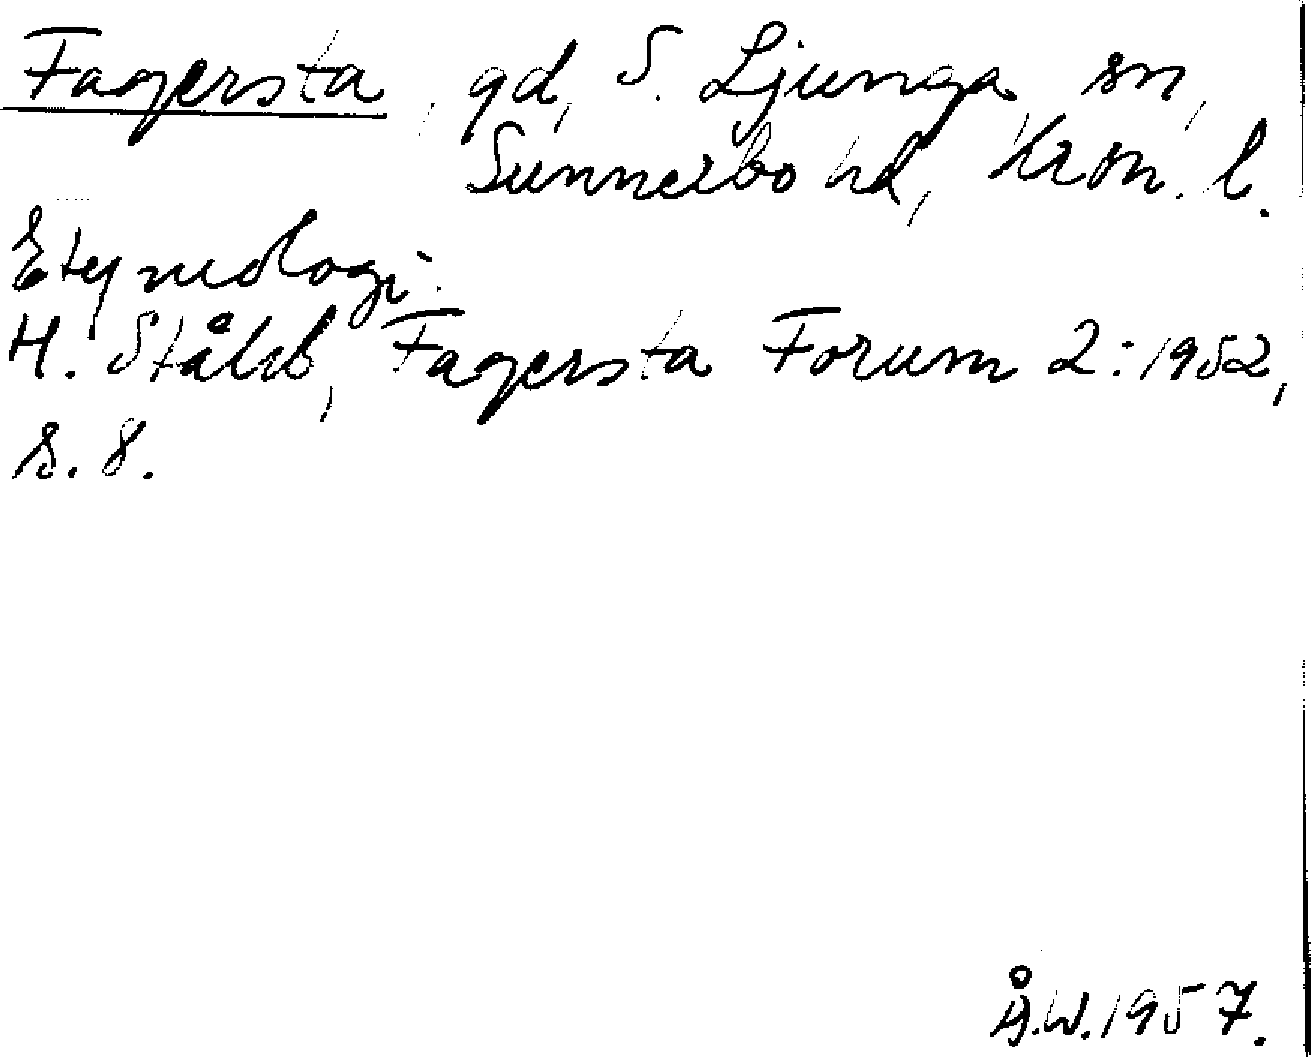 Fagersta, gd, S. Ljunga sn,
Sunnerbo hd, Kron. l.
Etymologi.
H. Ståhl, Fagersta Forum 2:1952,
s. 8.
Å.W. 1957.